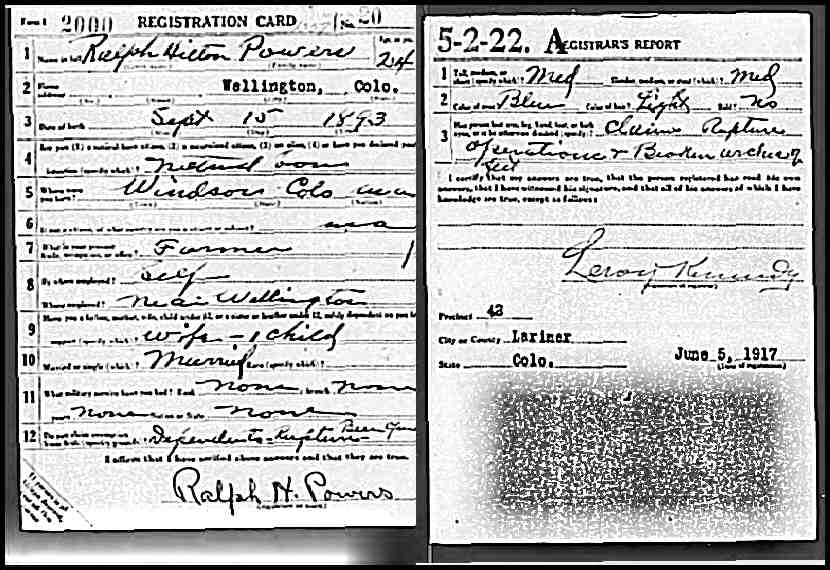 Form 1 2000 REGISTRATION CARD No. 20
1 Name in full Ralph Hilton Powers Age, in yrs. 24
2 Home address Wellington, Colo.
3 Date of birth Sept 15 1893
4 Are you (1) a natural-born citizen, (2) a naturalized citizen, (3) an alien, (4) or have you declared your
intention (specify which)? Natural born
5 Where were you born? Windsor Colo
6 If not a citizen, of what country are you a citizen or subject?
7 What is your present trade, occupation, or office? Farmer
8 By whom employed? Self
Where employed? Near Wellington
9 Have you a father, mother, wife, child under 12, or a sister or brother under 12, solely dependent on you for
support (specify which)? Wife - 1 child
10 Married or single (which)? Married Race (specify which)?
11 What military service have you had? Rank none branch none
years none Nation or State none
12 Do you claim exemption from draft (specify grounds)? Dependents - Rupture
I affirm that I have verified above answers and that they are true.
Ralph H. Powers
5-2-22. A REGISTRAR'S REPORT
1 Tall, medium, or short (specify which)? Med Slender, medium, or stout (which)? Med
2 Color of eyes? Blue Color of hair? Light Bald? No
3 Has person lost arm, leg, hand, foot, or both eyes, or is he otherwise disabled (specify)? Claims Rupture
operation & Broken arches of
feet
I certify that my answers are true, that the person registered has read his own
answers, that I have witnessed his signature, and that all of his answers of which I have
knowledge are true, except as follows:
Leroy Kennedy
(Signature of registrar)
Precinct 42
City or County Larimer
State Colo. June 5, 1917
(Date of registration)